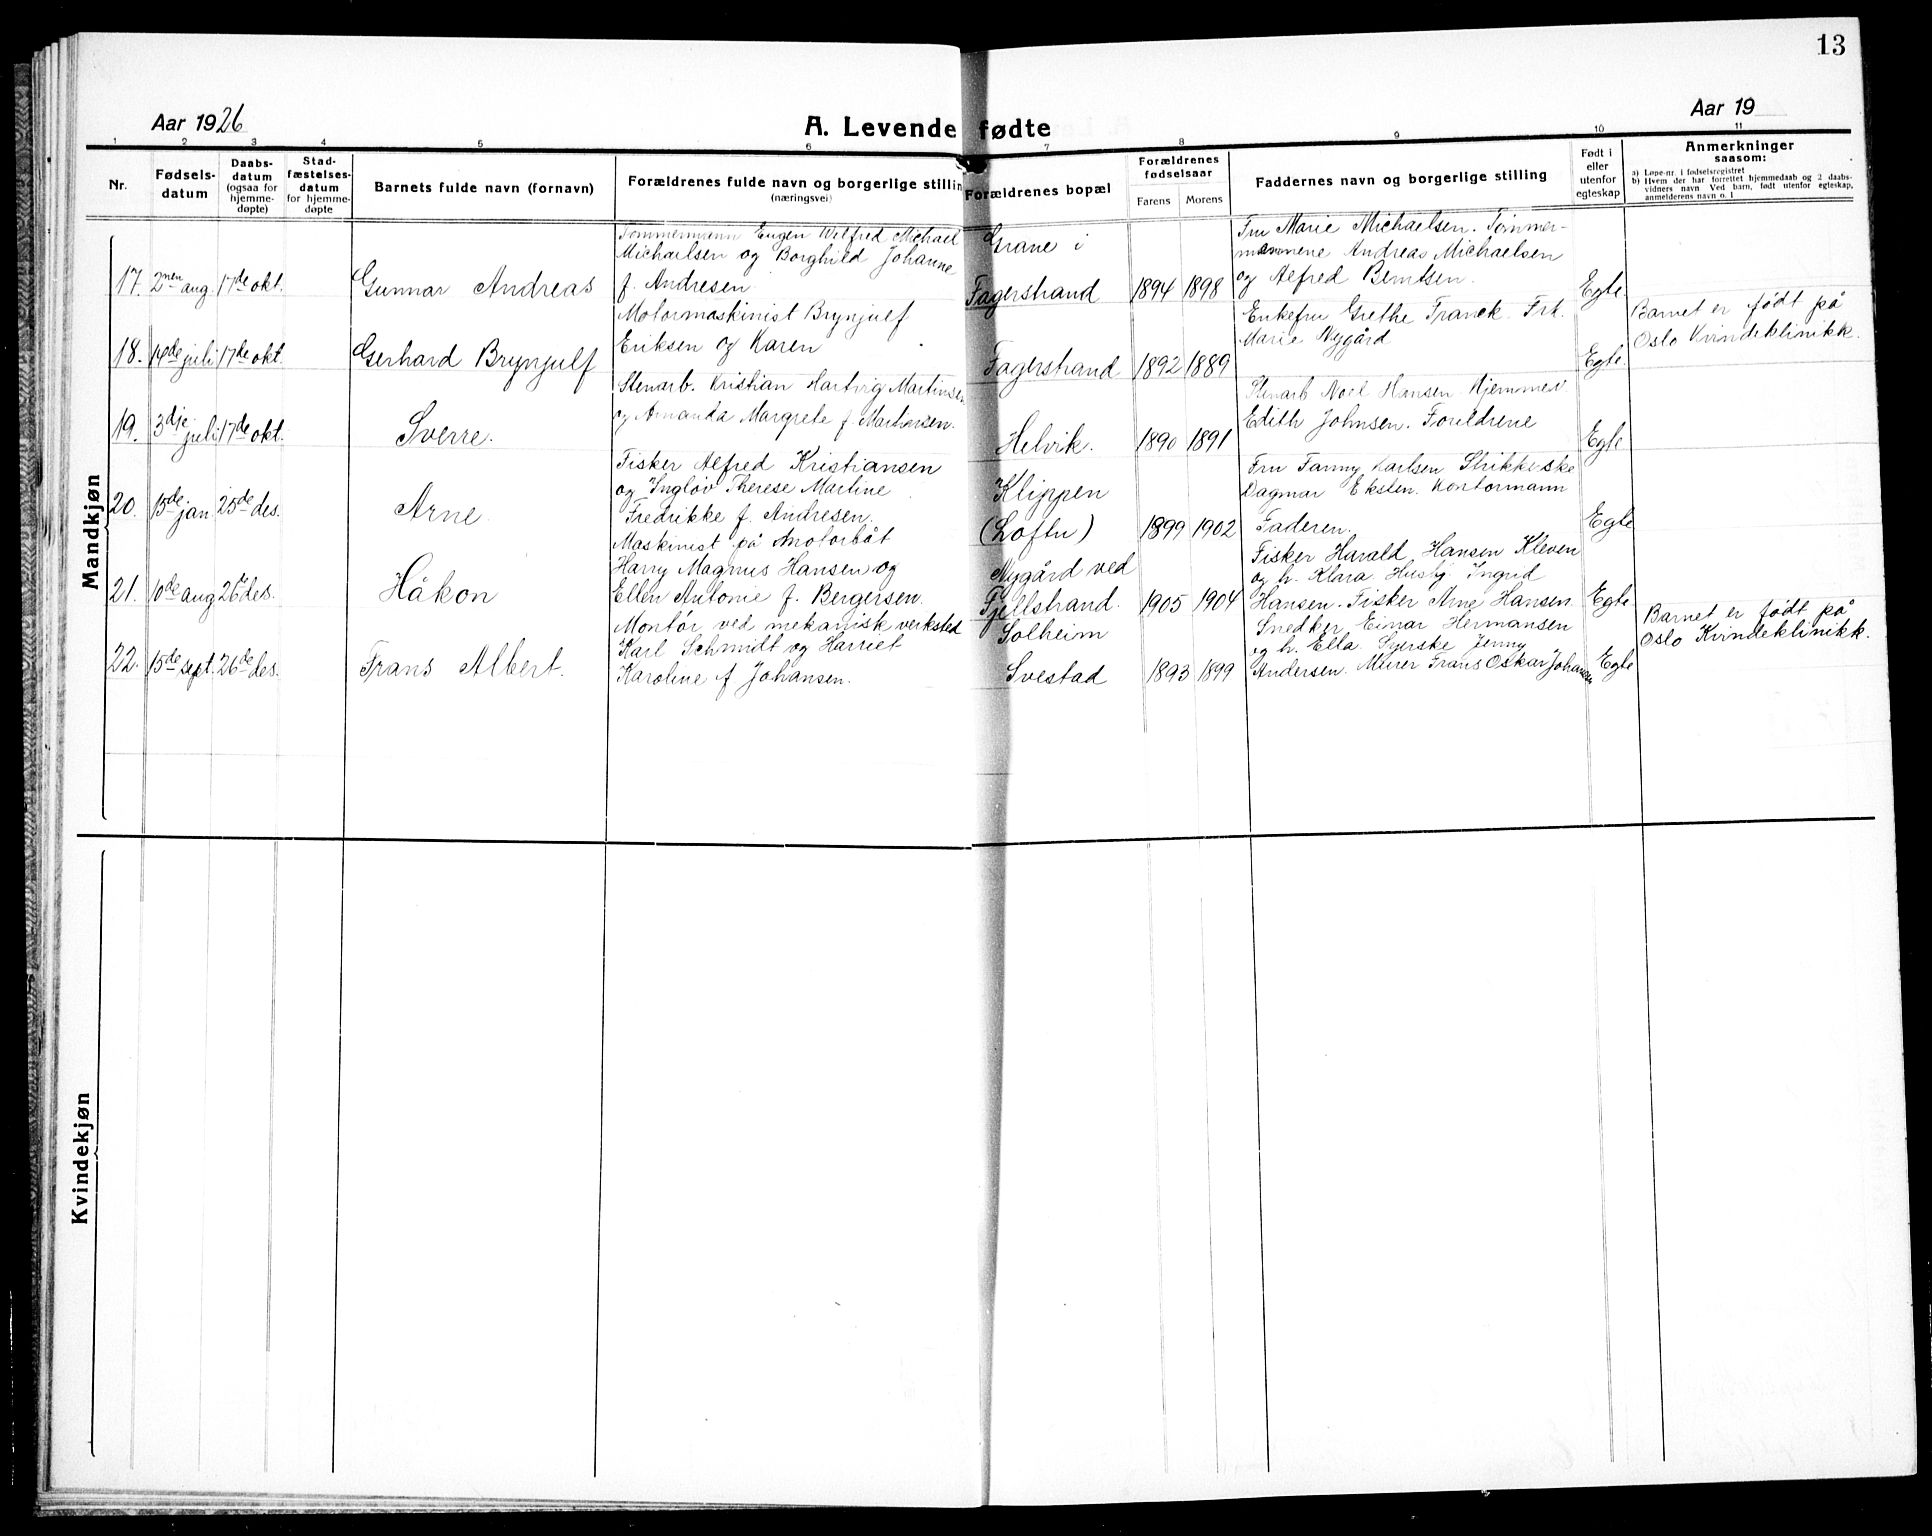 13
Aar 1926
A. Levende fødte
Aar 19
1 2 3 4 5 6 7 8 9 10 11
Nr.
Fødsels-
datum
Daabs-
datum
(ogsaa for
hjemme-
døpte)
Stad-
fæstelses-
datum
for hjemme-
døpte
Barnets fulde navn (fornavn)
Forældrenes fulde navn og borgerlige stillin
(næringsvei)
Forældrenes bopæl
Forældrenes
fødselsaar
Farens Morens
Faddernes navn og borgerlige stilling
Født i
eller
utenfor
egteskap
Anmerkninger
saasom:
a) Løpe-nr. i fødselsregistret
b) Hvem der har forrettet hjemmedaab og 2 daabs-
vidners navn Ved barn, født utenfor egteskap,
anmelderens navn o. l
Mandkjøn
17. 2nen aug. 17de okt. Gunnar Andreas
Tømmermann Eugen Wilfred Michael
Michaelsen og Borghild Johanne
f. Andresen
Grane i
Fagerstrand
1894 1898
Fru Marie Michaelsen. Tømmer-
mennene Andreas Michaelsen
og Alfred Berntsen.
Egte
18. 14de juli 17de okt. Gerhard Brynjulf
Motormaskinist Brynjulf
Eriksen og Karen
Fagerstrand
1892 1889
Enkefru Grethe Franck. Frk.
Marie Nygård
Egte.
Barnet er født på
Oslo Kvindeklinikk.
19. 3dje juli 17de okt. Sverre.
Stenarb. Kristian Hartvig Martinsen
og Amanda Margrete f. Martinsen.
Helvik.
1890 1891
Stenarb Noel Hansen Hjemmev
Edith Johnsen. Foreldrene
Egte
20. 15de jan. 25de des. Arne.
Fisker Alfred Kristiansen
og Ingløv Therese Martine
Fredrikke f. Andresen.
Klippen
(Loftu)
1899 1902
Fru Fanny Karlsen Strikkerske
Dagmar Eksten. Kontormann
Faderen.
Egte
21. 10de aug 26 des. Håkon
Maskinist på motorbåt
Harry Magnus Hansen og
Ellen Antonie f. Bergersen.
Nygård ved
Fjellstrand.
1905 1904
Fisker Harald Hansen Kleven
og h. Klara Husby Ingrid
Hansen. Fisker Arne Hansen
Egte
22. 15de sept. 26de des. Frans Albert.
Montør ved mekanisk verksted
Karl Schmidt og Harriet
Karoline f Johansen.
Solheim
Svestad
1893 1899
Snedker Einar Hermansen
og h. Ella Syerske Jenny
Andersen. Murer Frans Oskar Johansen
Egte
Barnet er født på
Oslo Kvindeklinikk.
Kvindekjøn